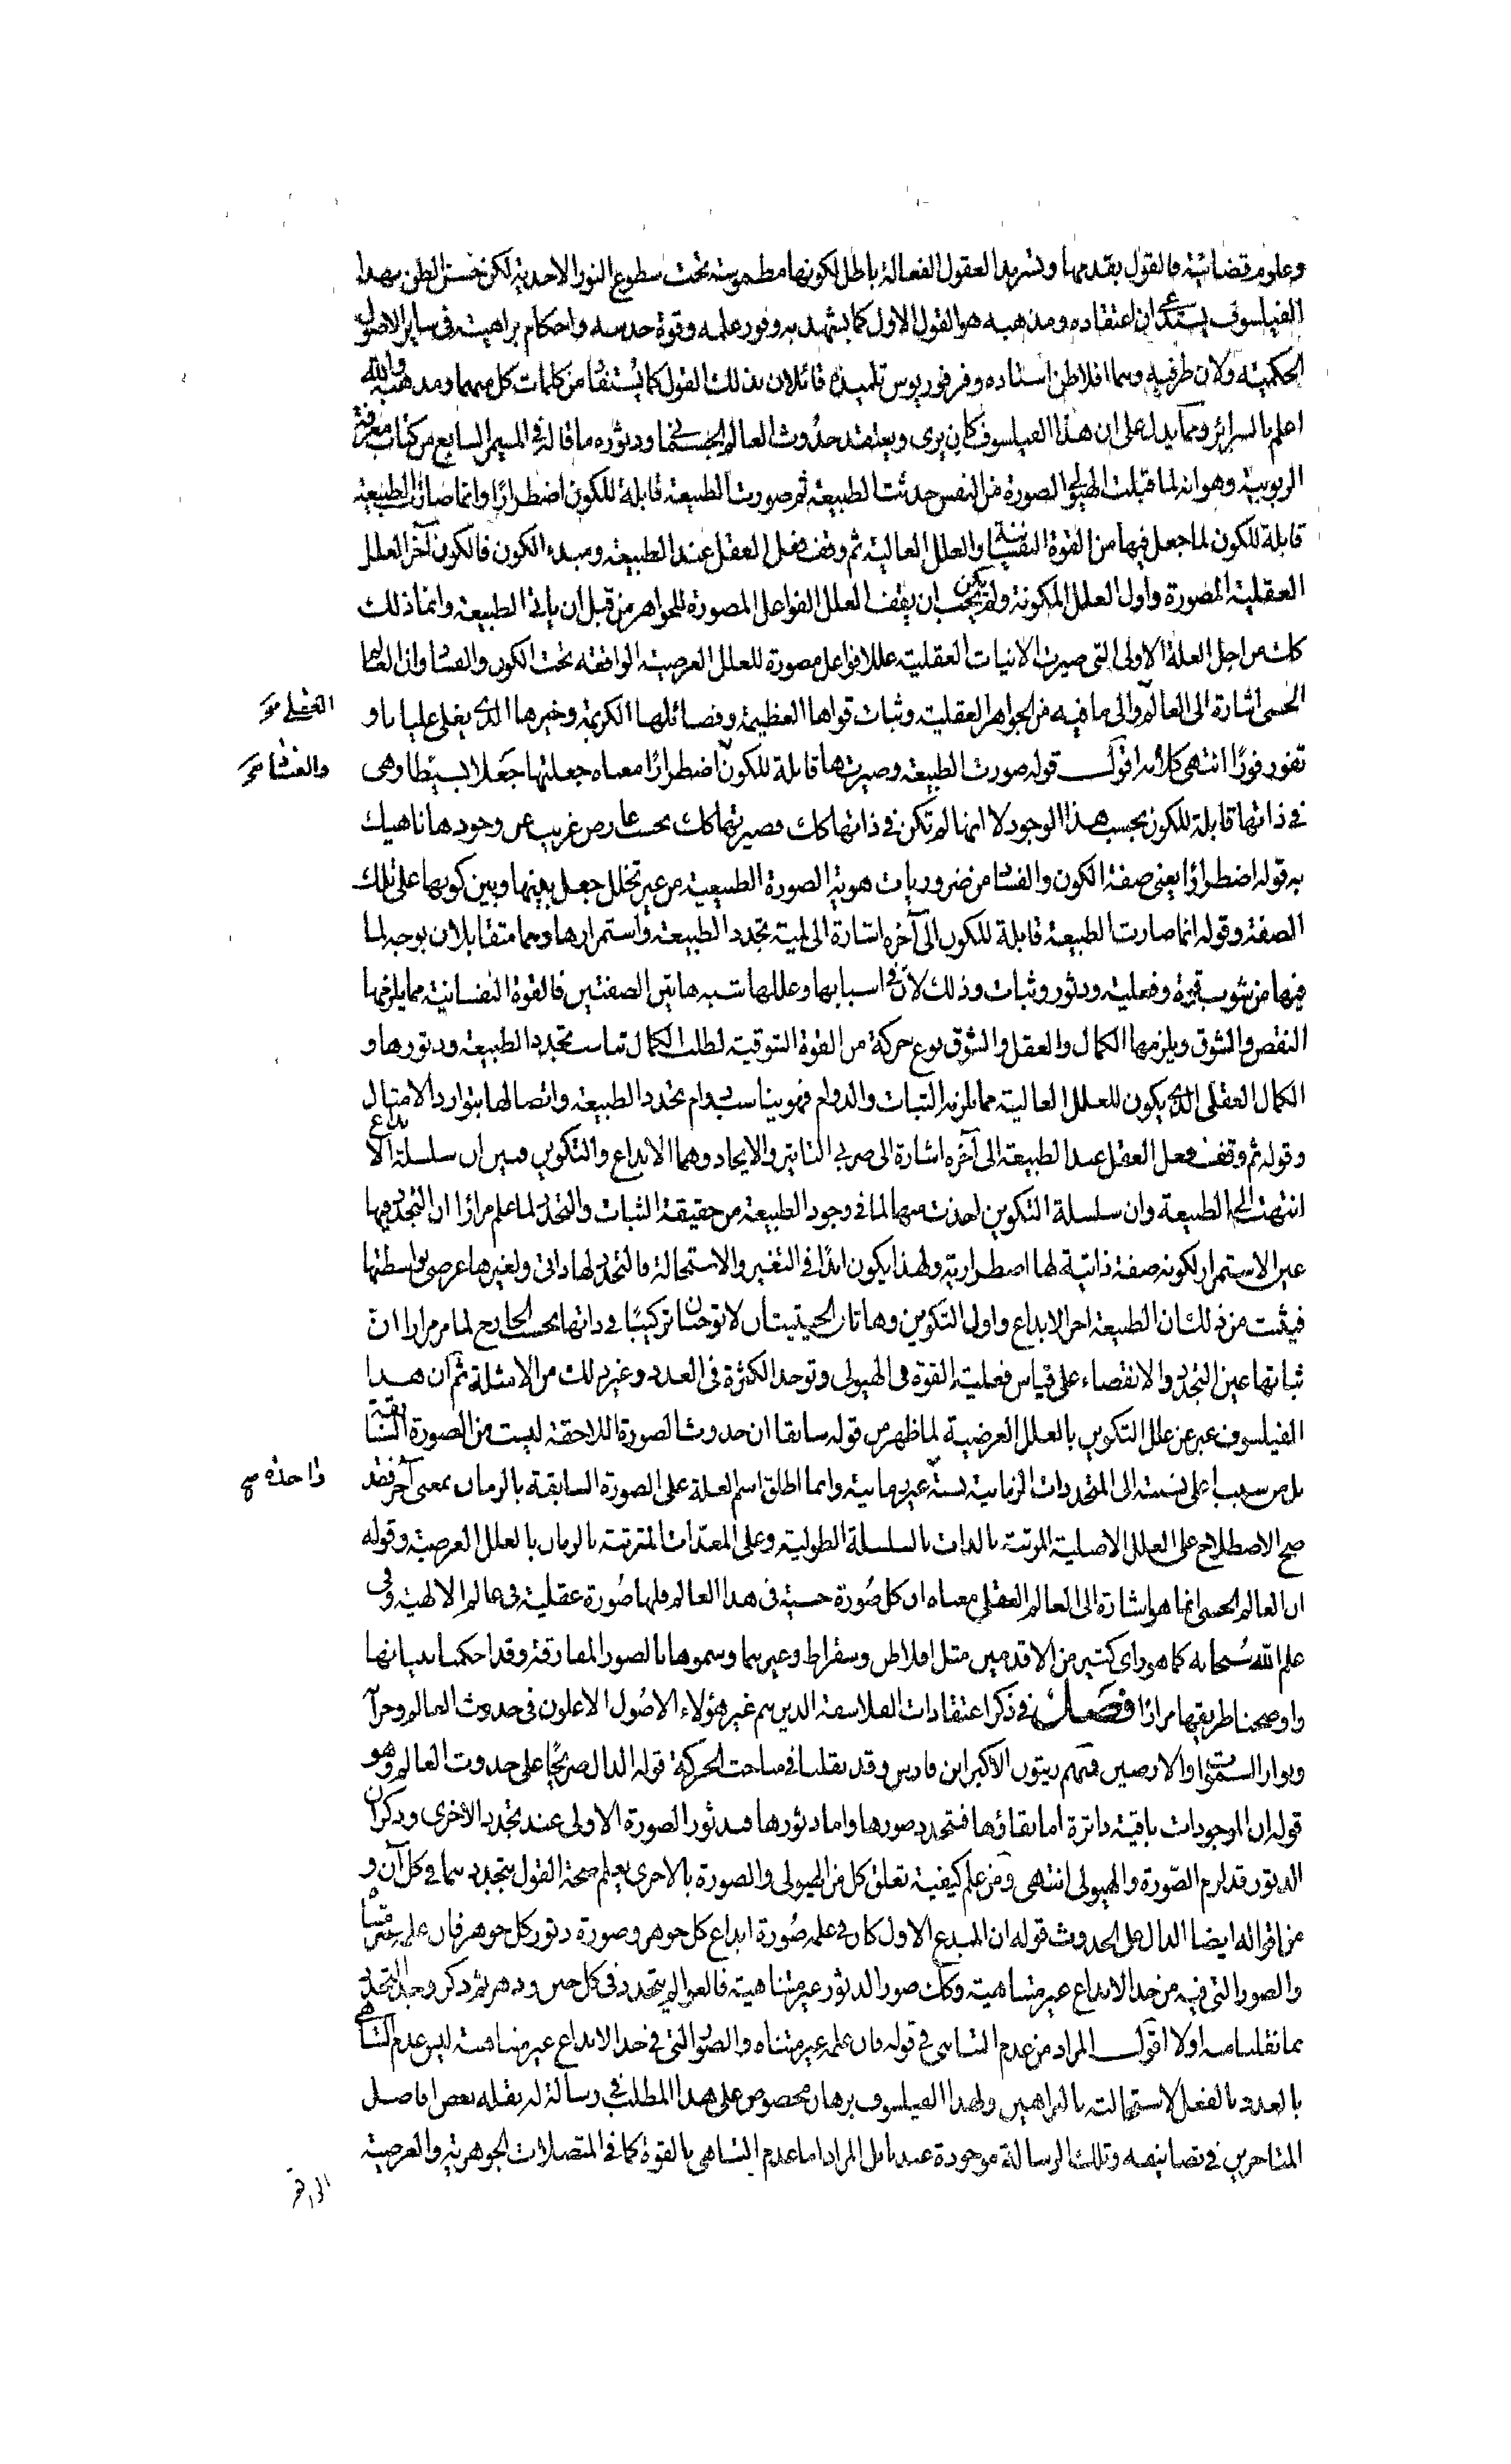 وعلوم قضائية فالقول بقدمها وتسرمد العقول الفعالة باطل لكونها مطموسة تحت سطوع النور الاحدية لكن حسن الظن بهذا
الفيلسوف يستدعي ان اعتقاده ومذهبه هو القول الاول كما يشهد به وفور علمه وقوة حدسه واحكام براهينه فى ساير الاصول
الحكمية ولان طرفيه وهما افلاطن استاده وفرفوريوس تلميذه قائلان بذلك القول كما يستفا من كلمات كل منهما ومذهبه والله
اعلم بالسراير ومما يدل على ان هذا الفيلسوف كان يرى ويعتقد حدوث العالم الجسمانى ودثوره ما قاله فى الميمر السابع من كتاب معرفة
الربوبية وهو انه لما قبلت الهيولى الصورة من النفس حدثت الطبيعة ثم صورت الطبيعة قابلة للكون اضطرارًا وانما صارت الطبيعة
قابلة للكون لما جعل فيها من القوة النفسانية والعلل العالية ثم وقف فعل العقل عند الطبيعة ومبدء الكون فالكون آخر العلل
العقلية المصورة واول العلل المكونة ولم يكن يجب ان يقف العلل الفواعل المصورة للجواهر من قبل ان ياتى الطبيعة وانما ذلك
كك من اجل العلة الاولى التى صيرت الانيات العقلية عللا فواعل مصورة للعلل العرضية الواقعة تحت الكون والفسا وان العالم
الحسى اشارة الى العالم والى ما فيه من الجواهر العقلية وثبات قواها العظيمة وفضائلها الكريمة وخيرها الذى يغلى غليانا و
العقلى
تفور فورًا انتهى كلامه اقول قوله صورت الطبيعة وصيرتها قابلة للكون اضطرارًا معناه جعلتها جعلا بسيطا وهى
والفساد
فى ذاتها قابلة للكون بحسب هذا الوجود لا انها لم تكن فى ذاتها كك فصيرتها كك بحسب عارض غريب عن وجودها ناهيك
به قوله اضطرارًا يعنى صفة الكون والفسا من ضروريات هوية الصورة الطبيعية من غير تخلل جعل بينها وبين كونها على تلك
الصفة وقوله انما صارت الطبيعة قابلة للكون الى آخره اشارة الى لمية تجدد الطبيعة واستمرارها وهما متقابلان بوجه لما
فيها من شوب قوة وفعلية ودثور وثبات وذلك لان فى اسبابها وعللها شبه هاتين الصفتين فالقوة النفسانية مما يلزمها
النقص والشوق ويلزمها الكمال والعقل والشوق نوع حركة من القوة الشوقية لطلب الكمال تناسب تجدد الطبيعة ودثورها و
الكمال العقلى الذى يكون للعلل العالية مما يلزمه الثبات والدوام فهو يناسب دوام تجدد الطبيعة واتصالها بتوارد الامثال
وقوله ثم وقف فعل العقل عند الطبيعة الى آخره اشارة الى ضربى التاثير والايجاد وهما الابداع والتكوين وبين ان سلسلة الابداع
انتهت الى الطبيعة وان سلسلة التكوين اخذت منها لما فى وجود الطبيعة من حقيقة الثبات والتجدد لما علم مرارًا ان التجدد فيها
عين الاستمرار لكونه صفة ذاتية لها اضطرارية ولهذا يكون ابدًا فى التغير والاستحالة فالتجدد لها ذاتى ولغيرها عرضى بواسطتها
فيثبت من ذلك ان الطبيعة اخر الابداع واول التكوين وهاتان الحيثيتان لا توجبان تركيبًا فى ذاتها بحسب الخارج لما مر مرارا ان
ثباتها عين التجدد والانقضاء على قياس فعلية القوة فى الهيولى وتوحد الكثرة فى العدد وغير ذلك من الامثلة ثم ان هذا
الفيلسوف عبر عن علل التكوين بالعلل العرضية لما ظهر من قوله سابقا ان حدوث الصورة اللاحقة ليست من الصورة السابقة
بل من سبب اعلى نسبته الى المتجددات الزمانية نسبة غير زمانية وانما اطلق اسم العلة على الصورة السابقة بالزمان بمعنى آخر فقد
واحدة صح
صح الاصطلاح على العلل الاصلية المرتبة بالذات بالسلسلة الطولية وعلى المعدّات المترتبة بالزمان بالعلل العرضية وقوله
ان العالم الحسى انما هو اشارة الى العالم العقلى معناه ان كل صُورة حسية فى هذا العالم فلها صُورة عقلية فى عالم الالهية وفى
علم الله سُبحانه كما هو راى كثير من الاقدمين مثل افلاطن وسقراط وغيرهما وسموها بالصور المفارقة وقد احكمنا بنيانها
واوضحنا طريقها مرارًا فصل فى ذكر اعتقادات الفلاسفة الذين هم غير هؤلاء الاصُول الاعلون فى حدوث العالم وخراب
وبوار السموات والارضين فمنهم زينون الاكبر ابن فارس وقد نقلنا فى مباحث الحركة قوله الدال صريحًا على حدوث العالم وهو
قوله ان الموجودات باقية داثرة اما بقاؤها فتجدد صورها واما دثورها فبدثور الصورة الاولى عند تجدد الاخرى وذكر ان
الدثور قد لزم الصّورة والهيولى انتهى ومن علم كيفية تعلق كل من الهيولى والصورة بالاخرى يعلم صحة القول بتجددهما فى كل آن و
من اقواله ايضا الدال على الحدوث قوله ان المبدع الاول كان فى علمه صُورة ابداع كل جوهر وصورة دثور كل جوهر فان علمه غير متناه
والصور التى فيه من حد الابداع غير متناهية وكك صور الدثور غير متناهية فالعوالم يتجدد فى كل حين ودهر ثم ذكر وجه التجدد
بما نقلنا منه اولا اقول المراد من عدم التناهى فى قوله فان علمه غير متناه والصور التى فى حد الابداع غير متناهية ليس عدم التناهى
بالعدد بالفعل لاستحالته بالبراهين ولهذا الفيلسوف برهان مخصوص على هذا المطلب فى رسالة له نقله بعض افاضل
المتاخرين فى تصانيفه وتلك الرسالة موجودة عندنا بل المراد اما عدم التناهى بالقوة كما فى المتصلات الجوهرية والعرضية